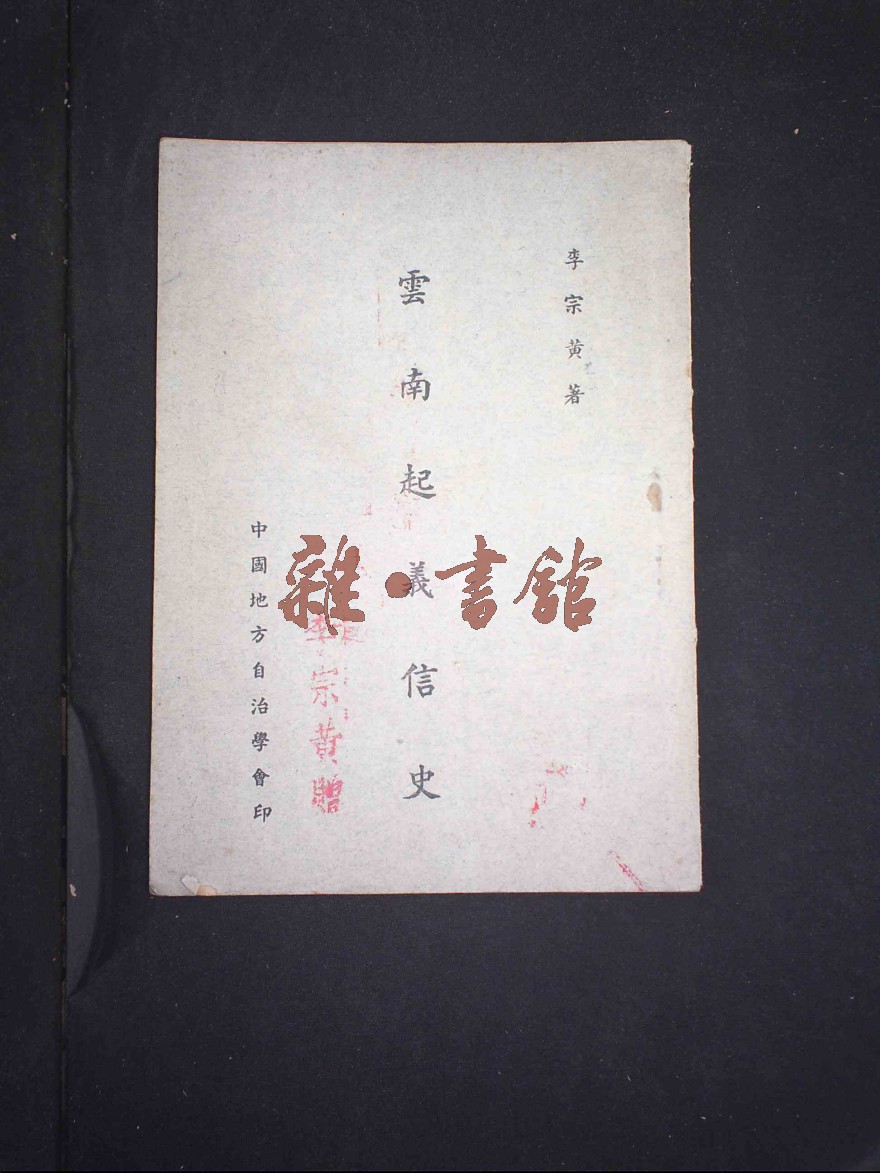 李宗黄著
雲南起義信史
李宗黄贈
中國地方自治學會印
雜·書館